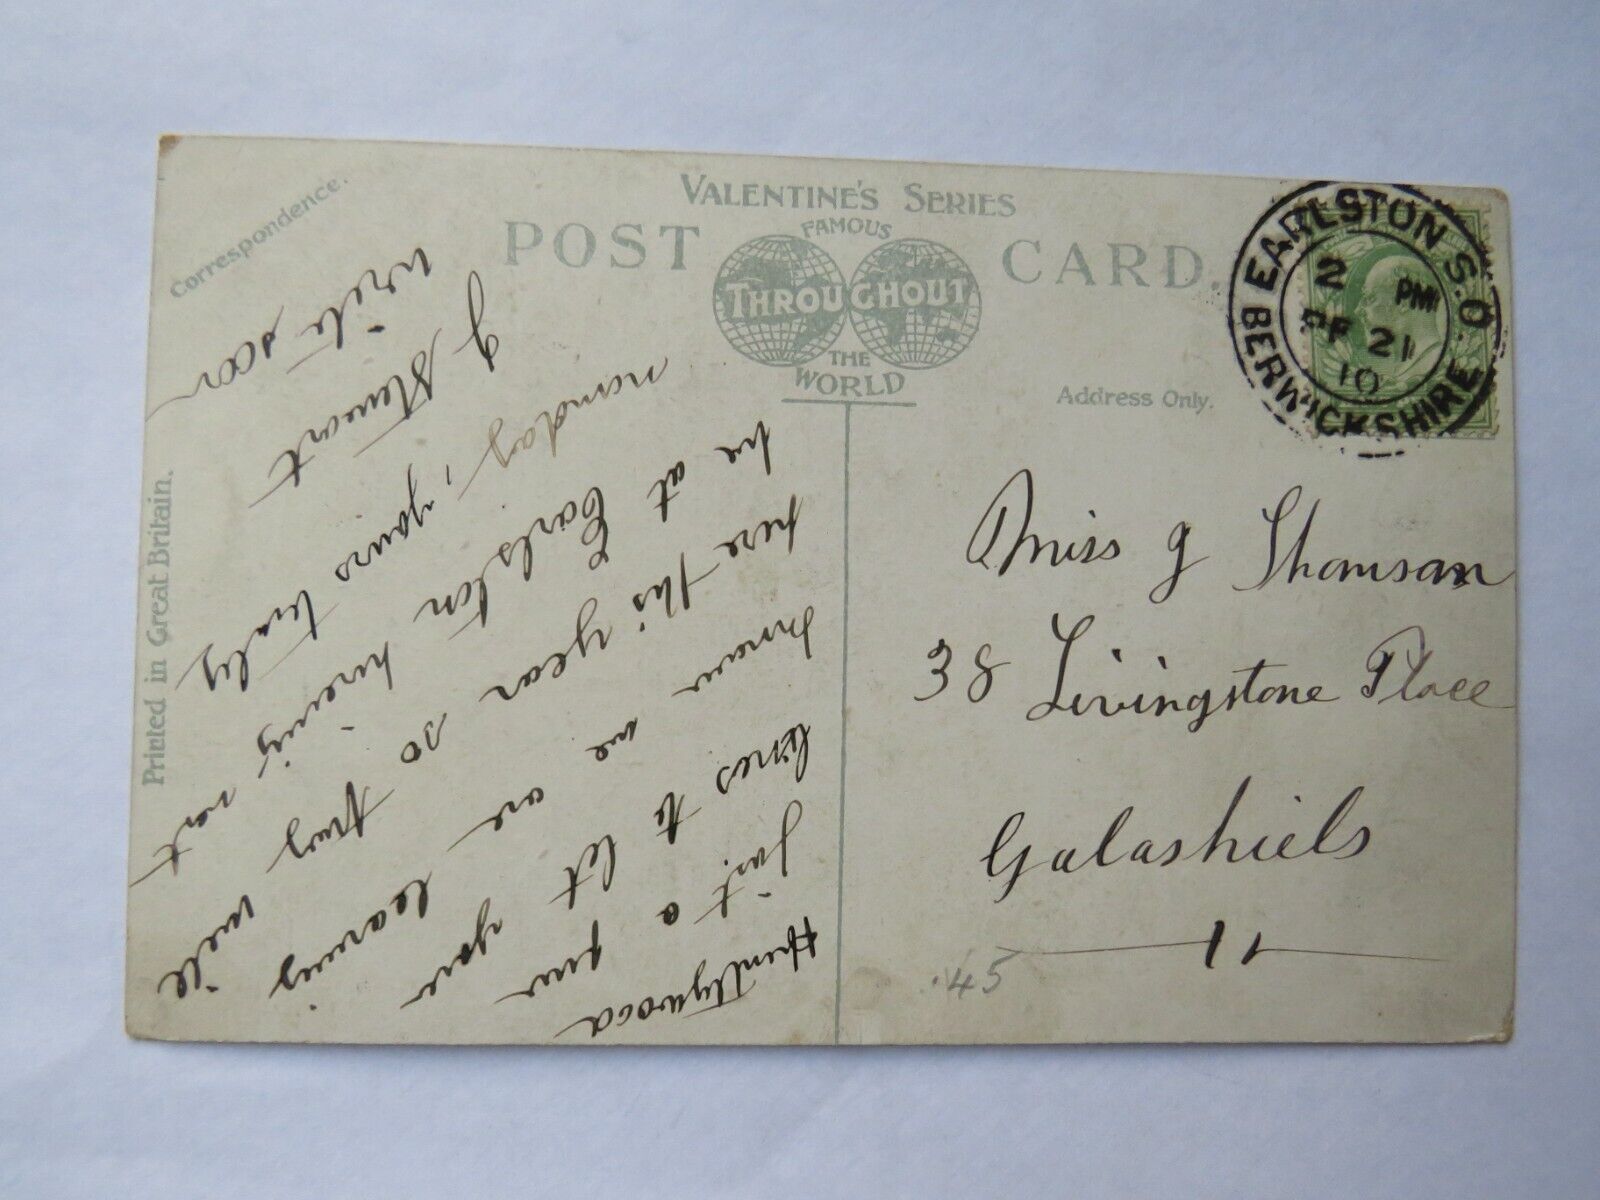 Correspondence.
VALENTINE'S SERIES
FAMOUS
POST CARD.
THROUGHOUT
THE
WORLD
Address Only.
Printed in Great Britain.
EARLSTON S.O.
2 PM
FE 21
10
BERWICKSHIRE
Miss J Thomson
38 Livingstone Place
Galashiels
.45
Huntlywood
Just a few
lines to let you
know we are leaving
here this year so they will
be at Earlston hireing not
monday, yours truly
J Stewart
write soon